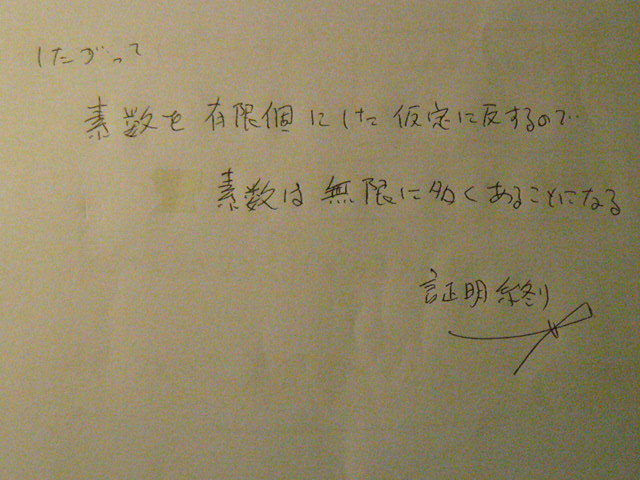 したがって
素数を有限個にした仮定に反するので
素数は無限に多くあることになる
証明終り